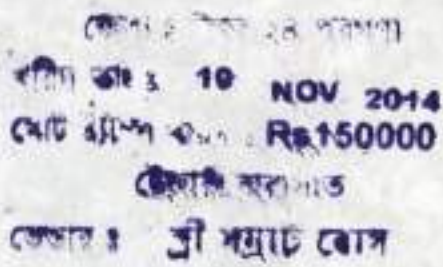 জেলা : উত্তর ২৪ পরগণা
খরিদ তাং : 19 NOV 2014
মোট স্ট্যাম্প : Rs150000
ট্রেজারি বারাসাত
ভেন্ডার : শ্রী সম্রাট বোস